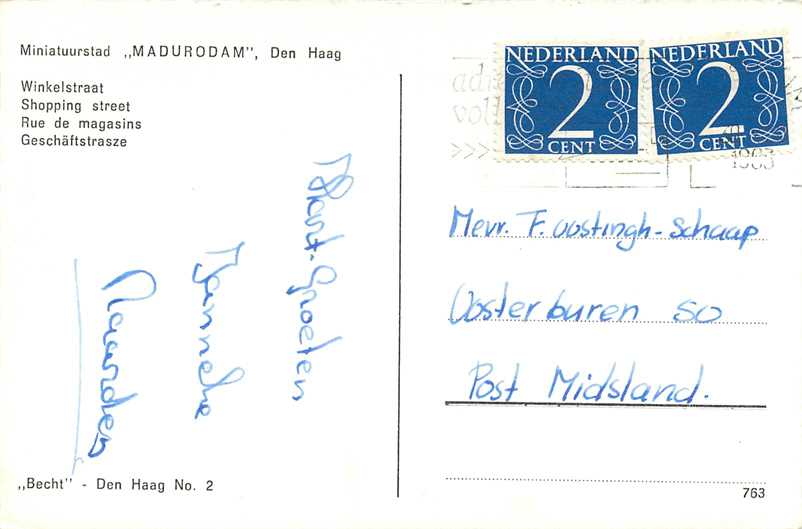 Miniatuurstad „MADURODAM", Den Haag
Winkelstraat
Shopping street
Rue de magasins
Geschäftstrasze
NEDERLAND
2
CENT
NEDERLAND
2
CENT
voll
>>>
1963
Hart. Groeten
Janneke
Mevr. F. Oostingh-Schaap
Oosterburen 50
Post Midsland.
„Becht" - Den Haag No. 2
763